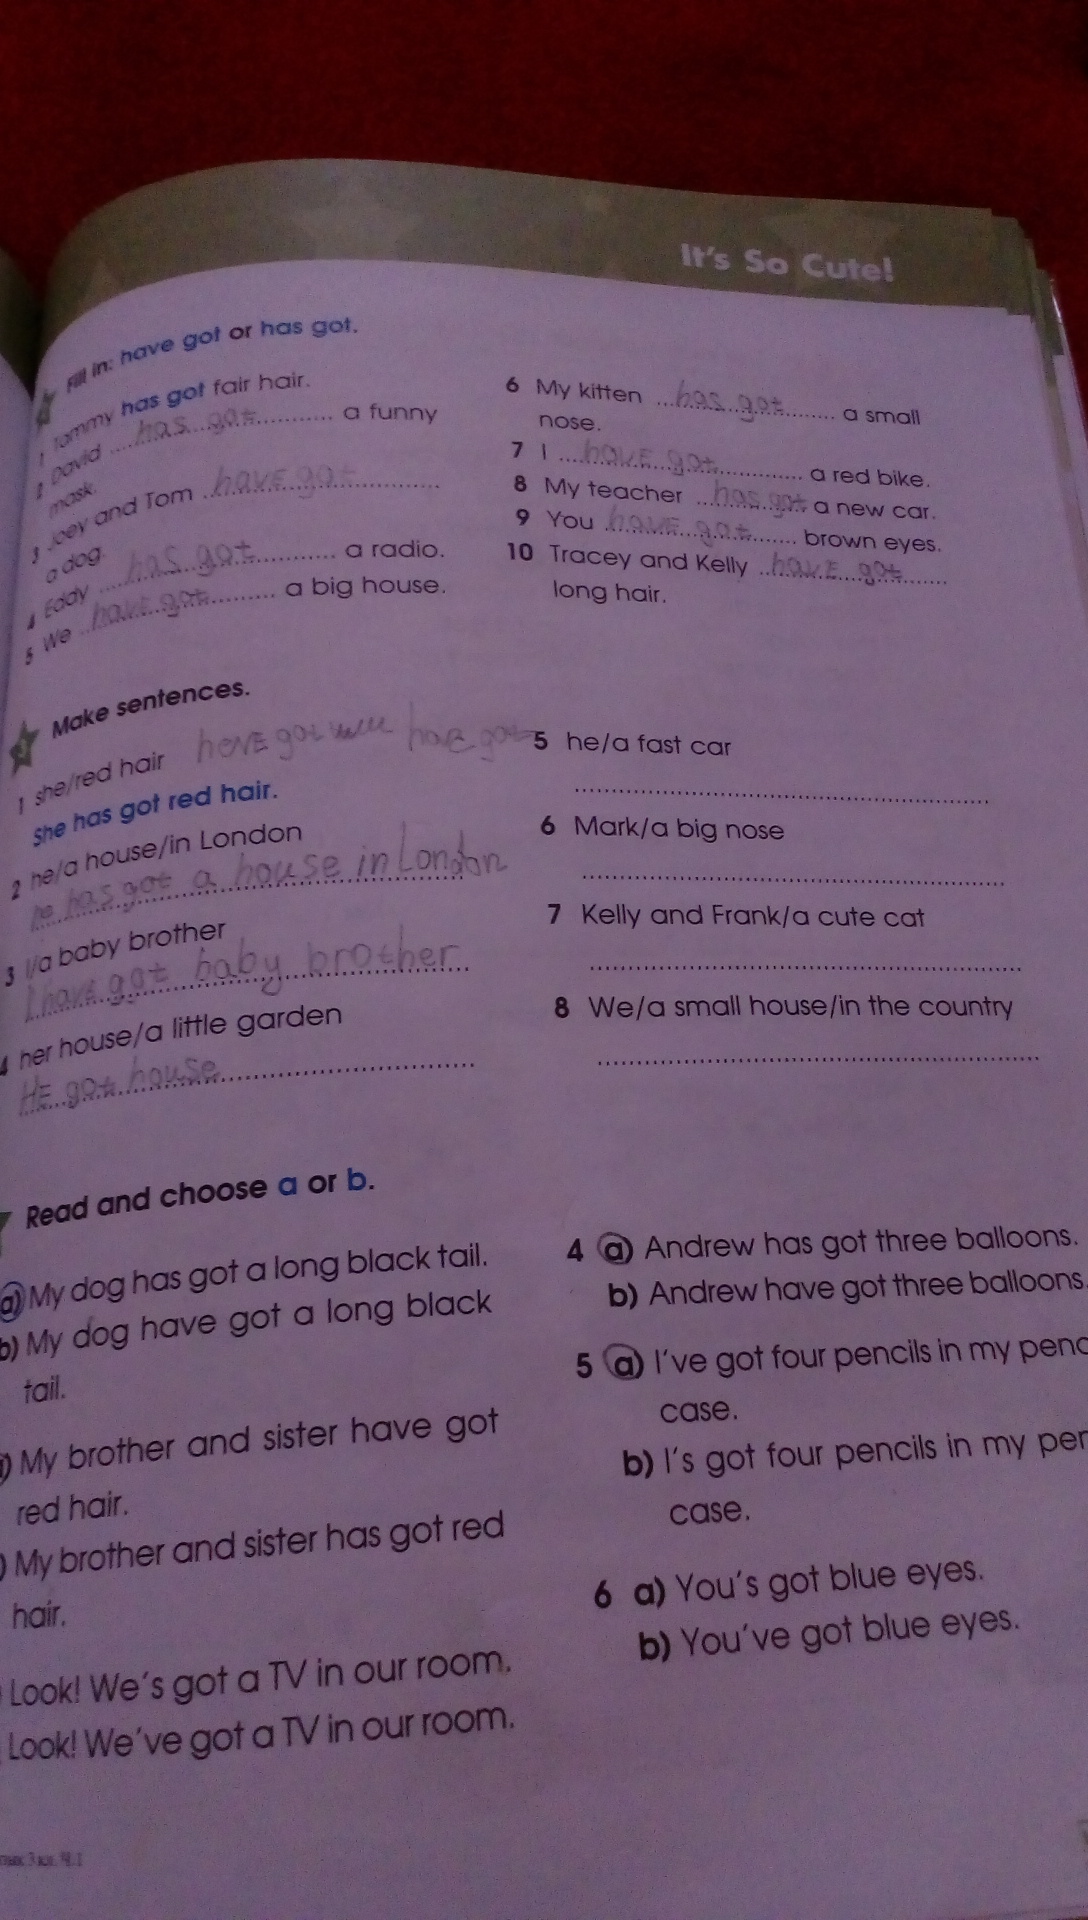 It's So Cute!
Fill in: have got or has got.
1 Tommy has got fair hair.
2 David has got a funny
mask.
3 Joey and Tom have got
a dog.
4 Eddy has got a radio.
5 We have got a big house.
6 My kitten has got a small
nose.
7 I have got a red bike.
8 My teacher has got a new car.
9 You have got brown eyes.
10 Tracey and Kelly have got
long hair.
Make sentences.
1 she/red hair
She has got red hair.
2 he/a house/in London
he has got a house in London
3 I/a baby brother
I have got baby brother
4 her house/a little garden
HE got house
5 he/a fast car
6 Mark/a big nose
7 Kelly and Frank/a cute cat
8 We/a small house/in the country
Read and choose a or b.
a) My dog has got a long black tail.
b) My dog have got a long black
tail.
My brother and sister have got
red hair.
My brother and sister has got red
hair.
Look! We's got a TV in our room.
Look! We've got a TV in our room.
4 a) Andrew has got three balloons.
b) Andrew have got three balloons.
5 a) I've got four pencils in my penc
case.
b) I's got four pencils in my pen
case.
6 a) You's got blue eyes.
b) You've got blue eyes.